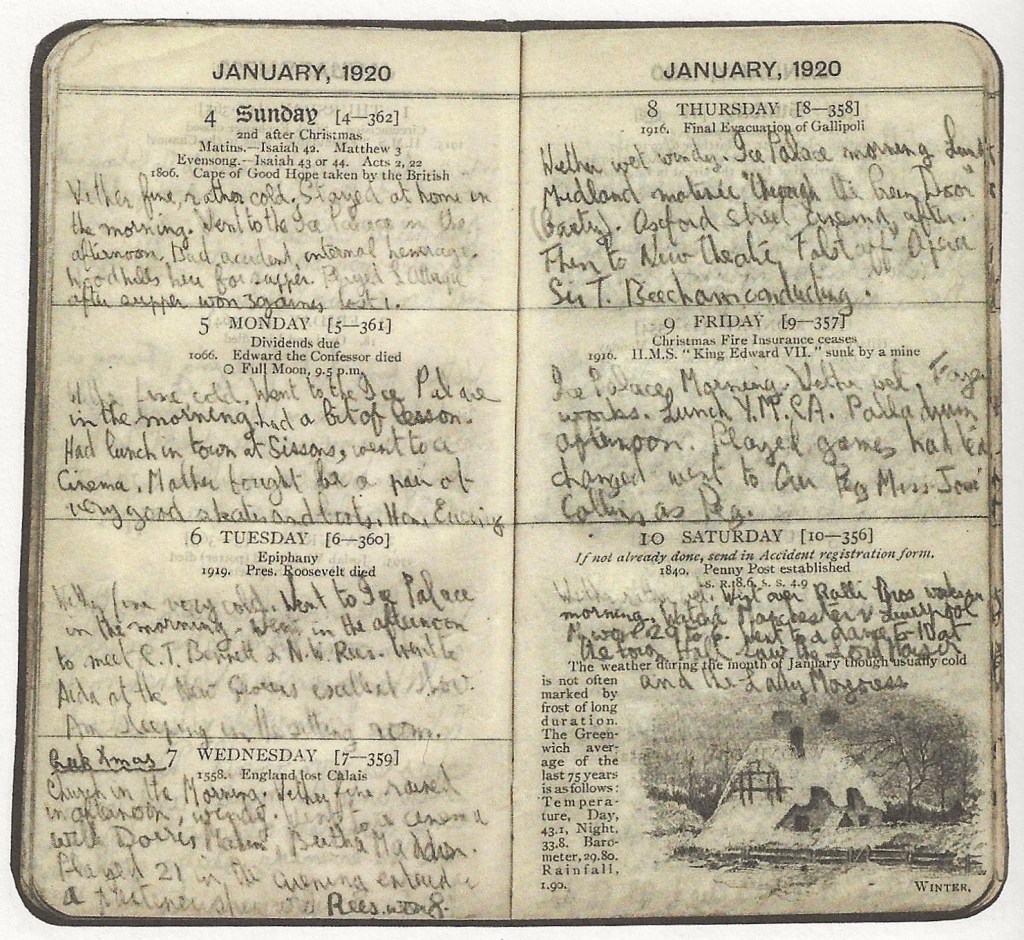 JANUARY, 1920
4 Sunday [4—362]
2nd after Christmas
Matins.—Isaiah 42. Matthew 3
Evensong.—Isaiah 43 or 44. Acts 2, 22
1806. Cape of Good Hope taken by the British
Wether fine, rather cold. Stayed at home in
the morning. Went to the Ice Palace in the
afternoon. Bad accident, internal
here for supper. Played
after supper won 3 games lost 1.
5 MONDAY [5—361]
Dividends due
1066. Edward the Confessor died
○ Full Moon, 9.5 p.m.
fine cold. Went to the Ice Palace
in the morning. had a bit of lesson.
Had lunch in town at Sissons, went to a
Cinema. Mother bought a pair of
very good skates and boots.
6 TUESDAY [6—360]
Epiphany
1919. Pres. Roosevelt died
fine very cold. Went to Ice Palace
in the morning. Went in the afternoon
to meet R.T. Bennett & N.W. Rees. Went to
Aida at the New
sleeping in the sitting room.
Rub Xmas 7 WEDNESDAY [7—359]
1558. England lost Calais
Church in the Morning. Wether fine rained
in afternoon, windy. Went to a cinema
with Madden.
Played 21 in the evening
a Rees won 8.
JANUARY, 1920
8 THURSDAY [8—358]
1916. Final Evacuation of Gallipoli
Wether wet windy. Ice Palace morning Lunch
Midland matinée "Through the Green Door"
(Gaety). Oxford Street Cinema, after.
Then to New Theatre, Falstaff Opera
Sir T. Beecham conducting.
9 FRIDAY [9—357]
Christmas Fire Insurance ceases
1916. H.M.S. "King Edward VII." sunk by a mine
Ice Palace Morning. Wether wet,
works. Lunch Y.M.C.A. Palladium
afternoon. Played games had tea
changed went to Our Peg Miss José
Collins as Peg.
10 SATURDAY [10—356]
If not already done, send in Accident registration form.
1840. Penny Post established
s. R. 8.6, s. s. 4.9
wet. Went over Ralli Bros works in
morning. Watched Manchester v Liverpool
M. won 29 to 6. Went to a dance 6-10 at
the town Hall saw the Lord Mayor
and the Lady Mayoress
The weather during the month of January though usually cold
is not often
marked by
frost of long
duration.
The Green-
wich aver-
age of the
last 75 years
is as follows:
Tempera-
ture, Day,
43.1, Night,
33.8. Baro-
meter, 29.80.
Rainfall,
1.90.
WINTER.